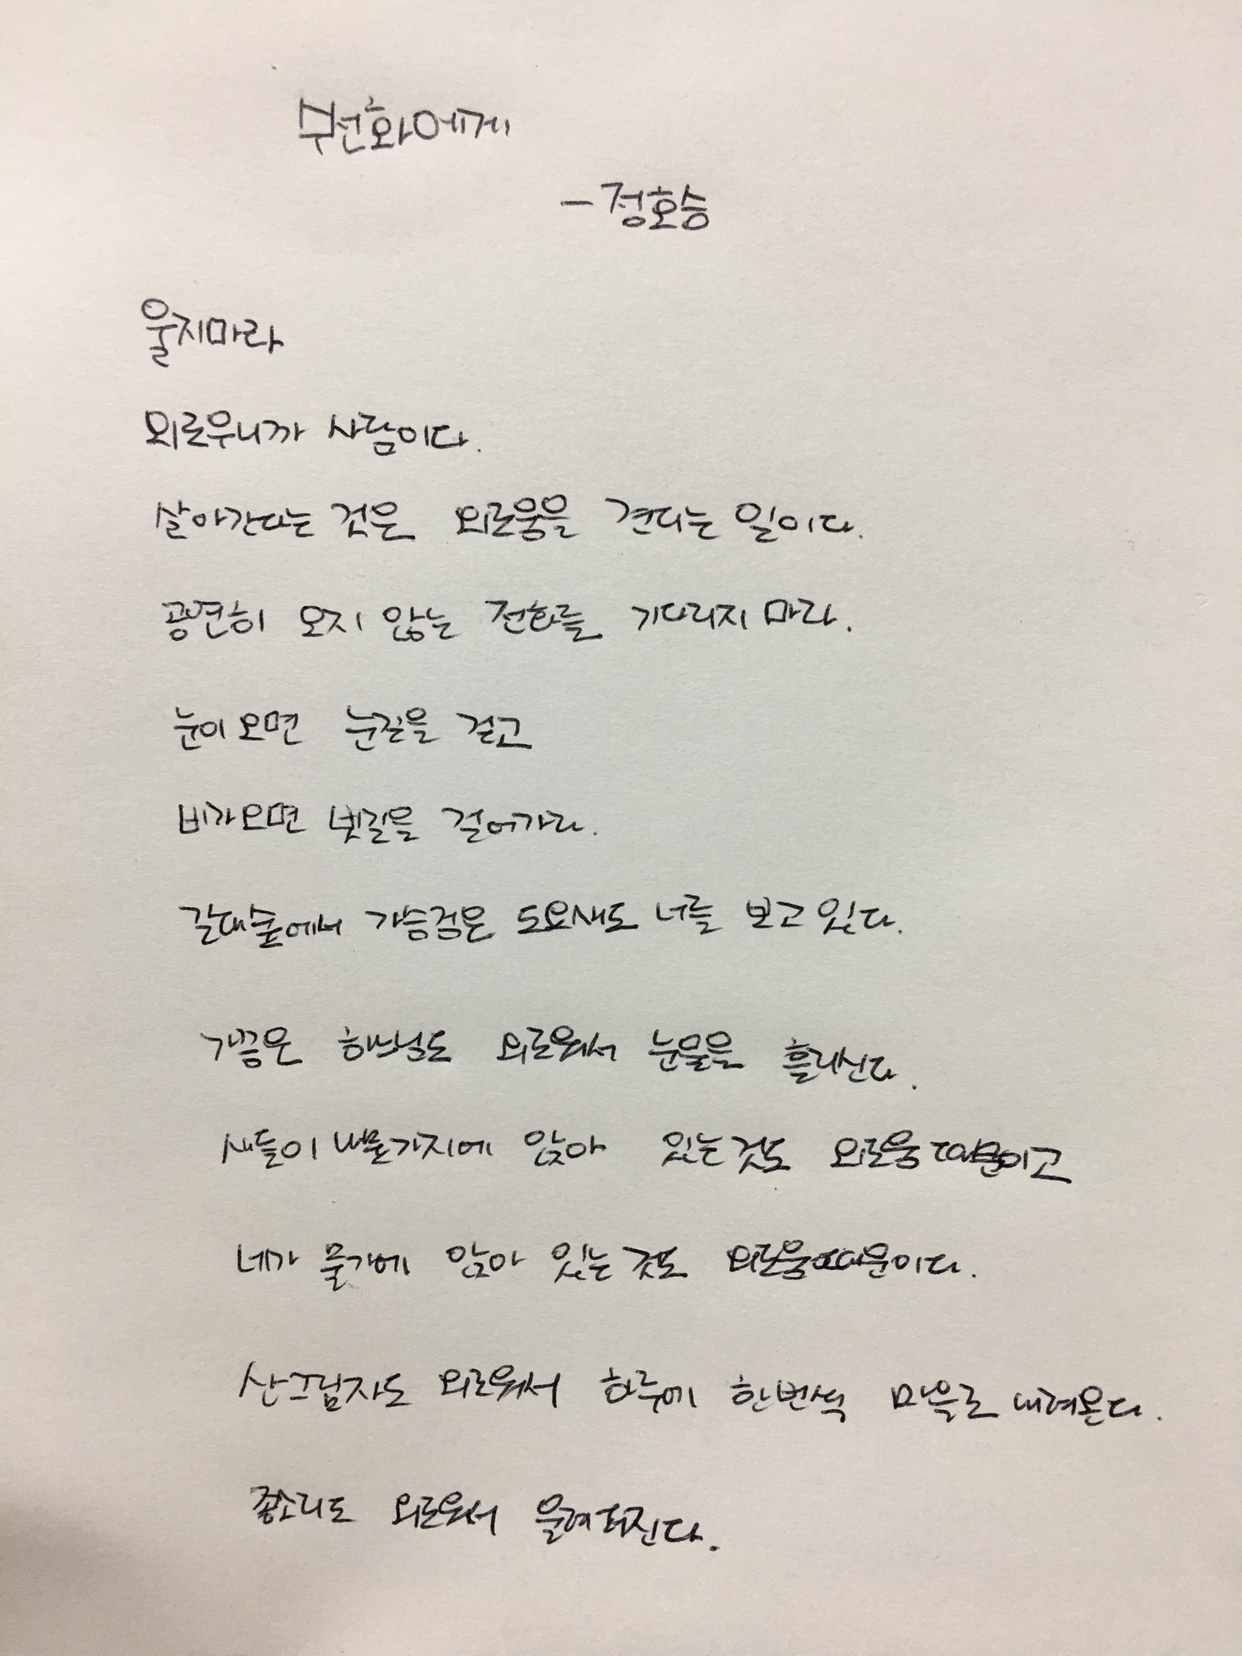 수선화에게
- 정호승
울지마라
외로우니까 사람이다.
살아간다는 것은 외로움을 견디는 일이다.
공연히 오지 않는 전화를 기다리지 마라.
눈이 오면 눈길을 걷고
비가 오면 빗길을 걸어가라.
갈대숲에서 가슴검은 도요새도 너를 보고 있다.
가끔은 하느님도 외로워서 눈물을 흘리신다.
새들이 나뭇가지에 앉아 있는 것도 외로움 때문이고
네가 물가에 앉아 있는 것도 외로움 때문이다.
산그림자도 외로워서 하루에 한번씩 마을로 내려온다.
종소리도 외로워서 울려퍼진다.